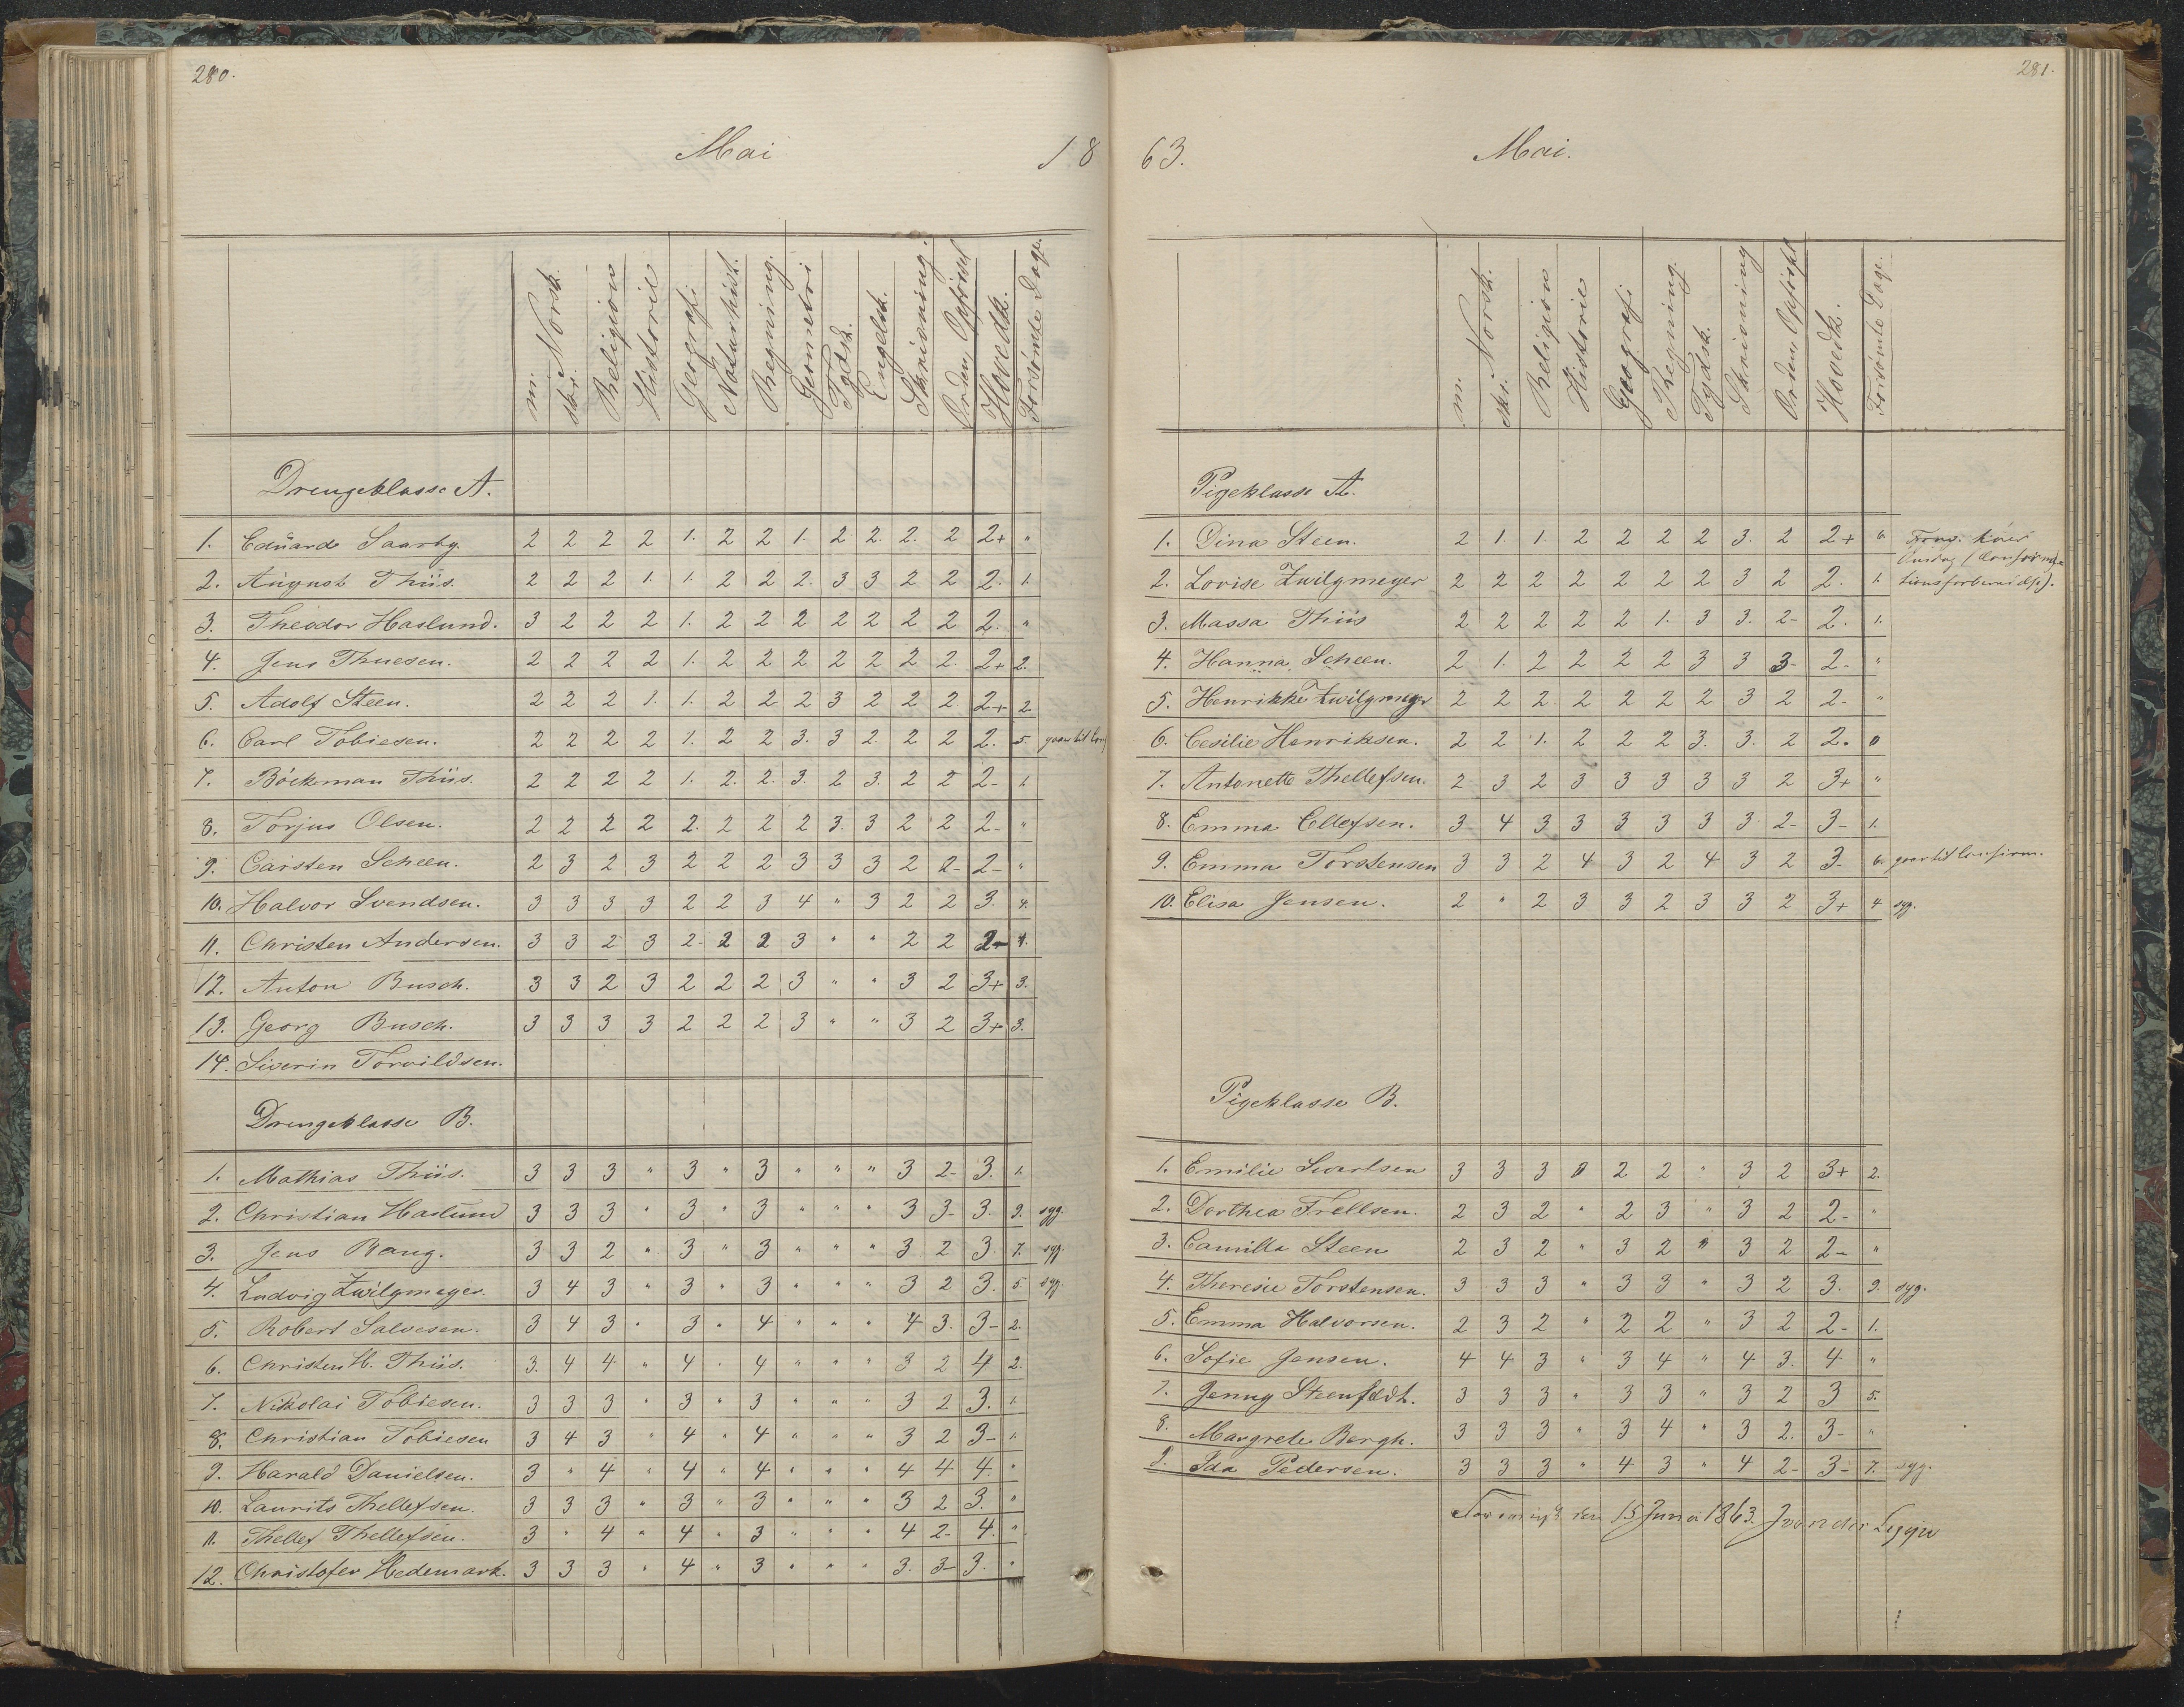 280.
Mai 18
m. Norsk. skr. Religion Historie Geografi Naturhist. Regning. Geometri Tydsk. Engelsk. Skrivning. Orden, Opførsel Hovedk. Forsømte Dage.
Drengeklasse A.
1. Edüard Saarby. 2 2 2 2 1. 2 2 1. 2 2. 2. 2 2+ "
2. Aügust Thiis. 2 2 2 1. 1. 2 2 2. 3 3 2 2 2. 1.
3. Theodor Haslund. 3 2 2 2 1. 2 2 2 2 2 2 2 2. "
4. Jens Thuesen. 2 2 2 2 1. 2 2 2 2 2 2 2. 2+ 2.
5. Adolf Steen. 2 2 2 1. 1. 2 2 2 3 2 2 2 2+ 2
6. Carl Tobiesen. 2 2 2 2 1. 2 2 3. 3 2. 2 2 2. 5. gaar til
7. Böckman Thiis. 2 2 2 2 1. 2. 2. 3. 2 3. 2 2 2- 1.
8. Torjus Olsen. 2 2 2 2 2. 2 2 2 3. 3 2 2 2- "
9. Carsten Scheen. 2 3 2 3 2 2 2 3 3 3 2 2- 2- "
10. Halvor Svendsen. 3 3 3 3 2 2 3 4 " 3 2 2 3. 4.
11. Christen Andersen. 3 3 2 3 2- 2 2 3 " " 2 2 2- 1.
12. Anton Busch. 3 3 2 3 2 2 2 3 " " 3 2 3+ 3.
13. Georg Busch. 3 3 3 3 2 2 2 3 " " 3 2 3+ 3.
14. Siverin Torvildsen.
Drengeklasse B.
1. Mathias Thiis. 3 3 3 " 3 " 3 " " " 3 2- 3. 1.
2. Christian Haslund 3 3 3 " 3 " 3 " " " 3 3- 3. 9. syg.
3. Jens Bang. 3 3 2 " 3 " 3 " " " 3 2 3. 7. syg.
4. Ludvig Zwilgmeyer. 3 4 3 " 3 " 3 " " " 3 2 3. 5 syg.
5. Robert Salvesen. 3 4 3 " 3 " 4 " " " 4 3. 3- 2.
6. Christen H. Thiis. 3. 4 4 " 4 " 4 " " " 3 2 4 2.
7. Nikolai Tobiesen. 3 3 3 " 3 " 3 " " " 3 2 3. 1.
8. Christian Tobiesen 3 4 3 " 4 " 4 " " " 3 2 3- 1.
9. Harald Danielsen. 3 " 4 " 4 " 4 " " " 4 4 4. "
10. Laurits Thellefsen. 3 3 3 " 3 " 3 " " " 3 2 3. "
11. Thellef Thellefsen. 3 " 4 " 4 " 3 " " " 4 2- 4. "
12. Christofer Hedemark. 3 3 3 " 4 " 3 " " " 3. 3- 3. "
281.
63. Mai.
m. Norsk. skr. Religion Historie Geografi Regning. Tydsk. Skrivning Orden, Opførsel Hovedk. Forsømte Dage.
Pigeklasse A.
1. Dina Steen. 2 1. 1. 2 2 2 2 3. 2 2+ 6. hver
Onsdag (Confirma-
2. Lovise Zwilgmeyer 2 2 2 2 2 2 2 3 2 2. 1. tionsforberedelse).
3. Massa Thiis 2 2 2 2 2 1. 3 3. 2- 2. 1.
4. Hanna Scheen. 2 1. 2 2 2 2 3 3 3- 2- "
5. Henrikke Zwilgmeyer 2 2 2. 2 2 2 2 3 2 2- "
6. Cesilie Henriksen. 2 2 1. 2 2 2 3. 3. 2 2. 0
7. Antonette Thellefsen. 2 3 2 3 3 3 3 3 2 3+ "
8. Emma Ellefsen. 3 4 3 3 3 3 3 3 2- 3- 1.
9. Emma Torstensen 3 3 2 4 3 2 4 3 2 3- 6. gaar til Confirm.
10. Elisa Jensen. 2 " 2 3 3 2 3 3 2 3+ 4 syg.
Pigeklasse B.
1. Emilie Sivertsen 3 3 3 0 2 2 " 3 2 3+ 2.
2. Dorthea Frellsen. 2 3 2 " 2 3 " 3 2 2- "
3. Camilla Steen 2 3 2 " 3 2 " 3 2 2- "
4. Theresie Torstensen. 3 3 3 " 3 3 " 3 2 3. 9. syg.
5. Emma Halvorsen. 2 3 2 " 2 2 " 3 2 2- 1.
6. Sofie Jensen. 4 4 3 " 3 4 " 4 3. 4 "
7. Jenny Steenfeldt. 3 3 3 " 3 3 " 3 2 3 5.
8. Margrete Bergh. 3 3 3 " 3 4 " 3 2. 3- "
9. Ida Pedersen. 3 3 3 " 4 3 " 4 2- 3- 7. syg.
den 15 Juni 1863.